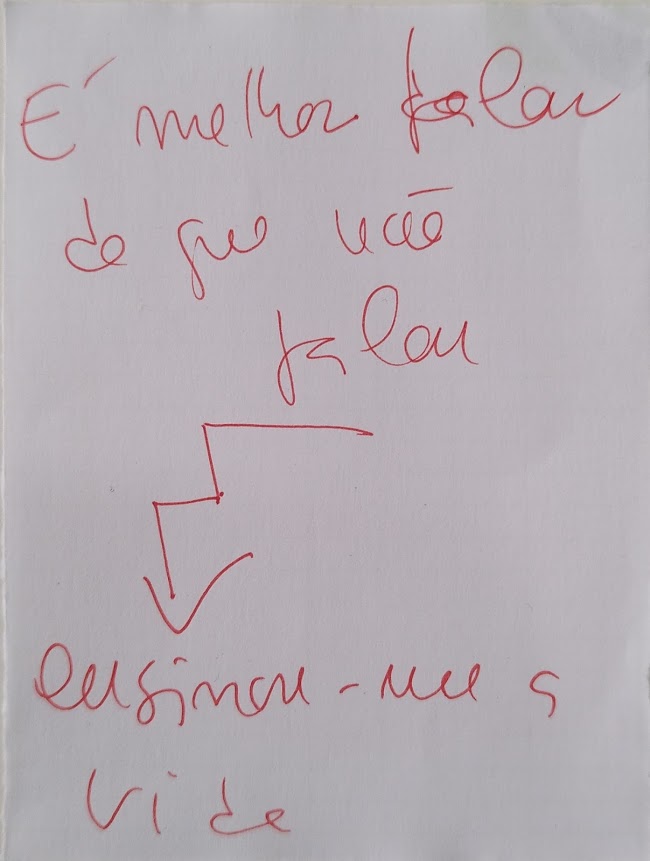 É melhor falar
do que não
falar
ensinou-me a
vida